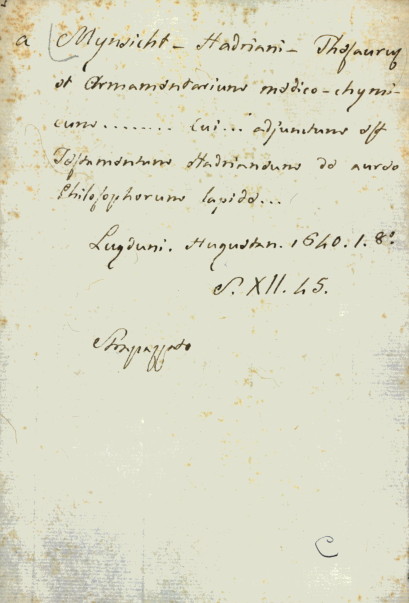 a Mynsicht - Hadriani - Thesaurus
et Armamentarium medico-chymi
cum ........ Cui ... adjunctum est
Testamentum Hadrianeum de aureo
Philosophorum lapide ...
Lugduni. Huguetan. 1640. 1. 8º
S. XII. 45.
Strapazzato
C